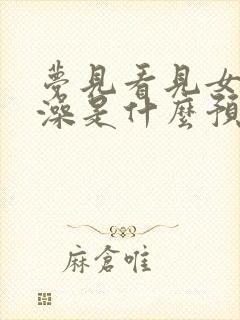 夢見看見女
澡是什麼預
麻倉唯